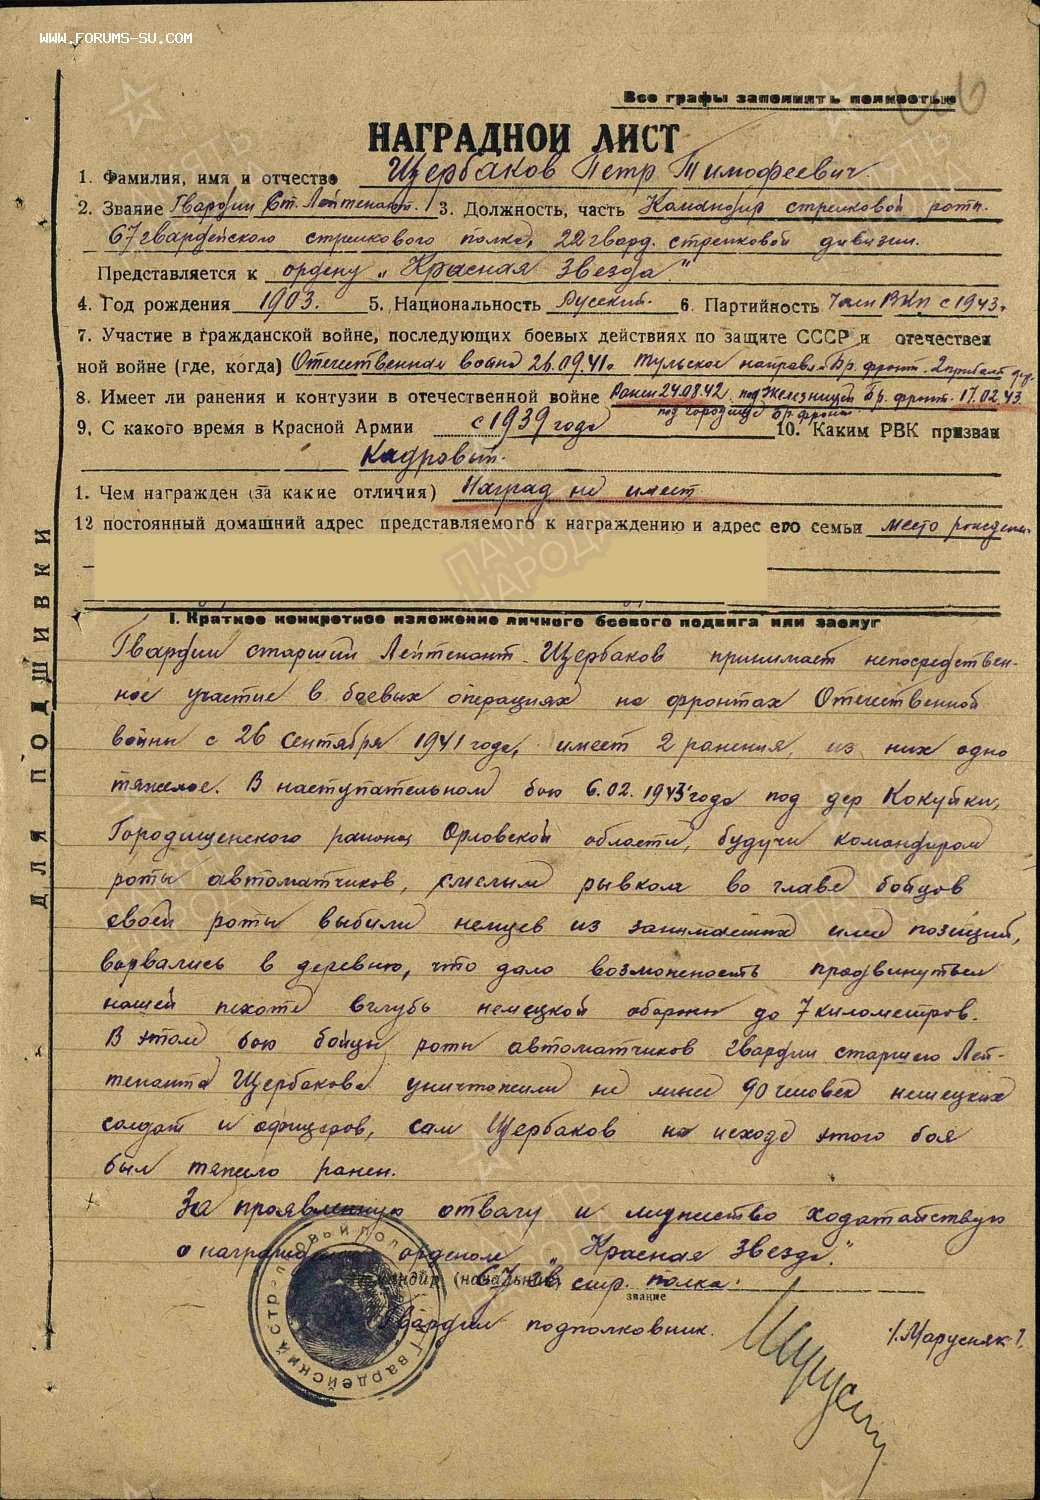 WWW.FORUMS-SU.COM
Все графы заполнять полностью
НАГРАДНОЙ ЛИСТ
1. Фамилия, имя и отчество Щербаков Петр Тимофеевич
2. Звание Гвардии Ст. Лейтенант. 3. Должность, часть Командир стрелковой роты.
67 гвардейского стрелкового полка, 22 гвард. стрелковой дивизии.
Представляется к ордену „Красная Звезда"
4. Год рождения 1903. 5. Национальность Русский. 6. Партийность Член ВКП с 1943г
7. Участие в гражданской войне, последующих боевых действиях по защите СССР и отечествен
ной войне (где, когда) Отечественная война 26.09.41г. Тульское направл. Бр. фронт. 2 прибалт фр.
8. Имеет ли ранения и контузии в отечественной войне Ранен 24.08.42 под Железницей Бр. фронт. 17.02.43
под городище Бр. фронт
9. С какого времени в Красной Армии с 1939 года 10. Каким РВК призван
Кадровый.
1. Чем награжден (за какие отличия) Наград не имеет
12 постоянный домашний адрес представляемого к награждению и адрес его семьи место рожден
I. Краткое конкретное изложение личного боевого подвига или заслуг
Гвардии старший Лейтенант Щербаков принимает непосредствен-
ное участие в боевых операциях на фронтах Отечественной
войны с 26 Сентября 1941 года, имеет 2 ранения, из них одно
тяжелое. В наступательном бою 6.02.1943 года под дер Кокуйки,
Городищенского района Орловской области, будучи командиром
роты автоматчиков, смелым рывком во главе бойцов
своей роты выбили немцев из занимаемых ими позиций,
ворвались в деревню, что дало возможность продвинуться
нашей пехоте вглубь немецкой обороны до 7 километров.
В этом бою бойцы роты автоматчиков гвардии старшего Лей-
тенанта Щербакова уничтожили не мене 90 человек немецких
солдат и офицеров, сам Щербаков на исходе этого боя
был тяжело ранен.
За проявленную отвагу и мужество ходатайствую
о награждении орденом „Красная Звезда".
Командир (начальник) 67 гв стр. полка.
звание
Гвардии подполковник. /Марусняк/
ДЛЯ ПОДШИВКИ
ПАМЯТЬ НАРОДА